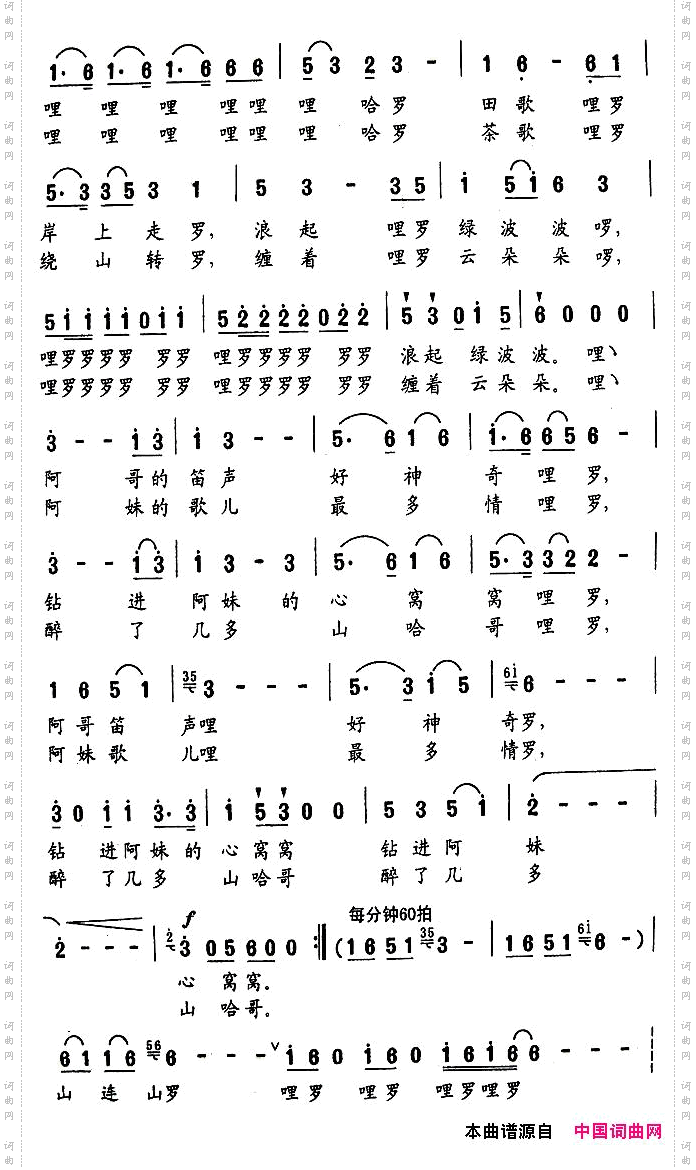 1· 6 1· 6 1· 6 6 6 | 5 3 2 3 - | 1 6 - 6 1 |
哩 哩 哩 哩哩 哩 哈罗 田歌 哩罗
哩 哩 哩 哩哩 哩 哈罗 茶歌 哩罗
5· 3 3 5 3 1 | 5 3 - 3 5 | i 5 i 6 3 |
岸 上 走 罗, 浪起 哩罗 绿 波 波 啰,
绕 山 转 罗, 缠着 哩罗 云 朵 朵 啰,
5 i i i i 0 i i | 5 2 2 2 2 0 2 2 | 5 3 0 i 5 | 6 0 0 0 |
哩罗罗罗罗 罗罗 哩罗罗罗罗 罗罗 浪起 绿波 波。 哩
哩罗罗罗罗 罗罗 哩罗罗罗罗 罗罗 缠着 云朵 朵。 哩
3 - - i 3 | i 3 - - | 5· 6 1 6 | i· 6 6 5 6 - |
阿 哥的 笛声 好 神 奇 哩 罗,
阿 妹的 歌儿 最 多 情 哩 罗,
3 - - i 3 | i 3 - 3 | 5· 6 1 6 | 5· 3 3 2 2 - |
钻 进 阿妹 的 心 窝 窝 哩罗,
醉 了 几多 山 哈 哥 哩罗,
1 6 5 1 | 35 3 - - - | 5· 3 i 5 | 6i 6 - - - |
阿哥笛 声哩 好 神 奇罗,
阿妹歌 儿哩 最 多 情罗,
3 0 i i 3· 3 | i 5 3 0 0 | 5 3 5 i | 2 - - - |
钻 进阿妹的 心 窝窝 钻进阿 妹
醉 了几多 山哈哥 醉了几 多
f 每分钟60拍
2 - - - | 2 3 0 5 6 0 0 :‖ ( 1 6 5 1 35 3 - - | 1 6 5 1 6i 6 - ) |
心 窝窝。
山 哈哥。
6 1 1 6 56 6 - - - ∨ i 6 0 i 6 0 i 6 i 6 6 - - - |
山 连 山罗 哩罗 哩罗 哩罗哩罗
本曲谱源自 中国词曲网
词曲网